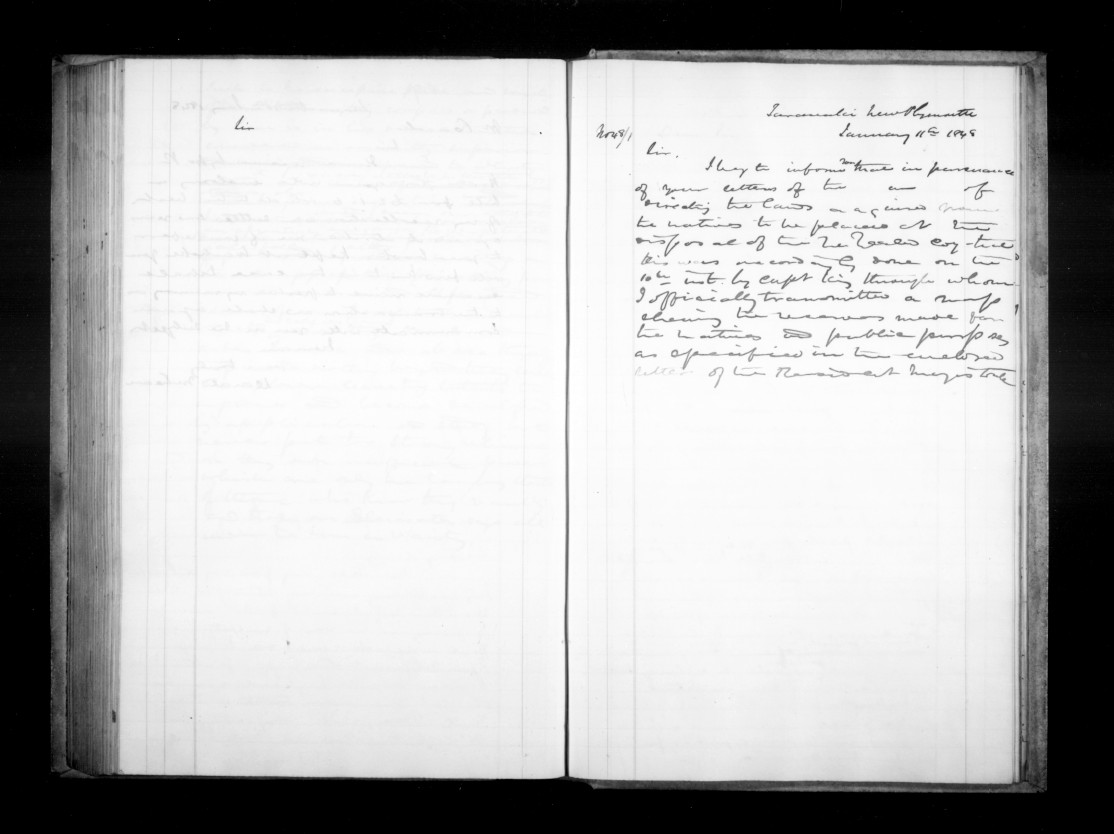 Sir
Taranaki New Plymouth
January 11th 1848
No 48/1
Sir.
I beg to inform you that in pursuance
of your letters of the an of
directing the lands acquired from
the natives to be placed at the
disposal of the N Zeald Coy that
this was accordingly done on the
10th inst. by Capt King through whom
I officially transmitted a map
shewing the reserves made for
the natives and public purposes
as specified in the enclosed
letter of the Resident Magistrate